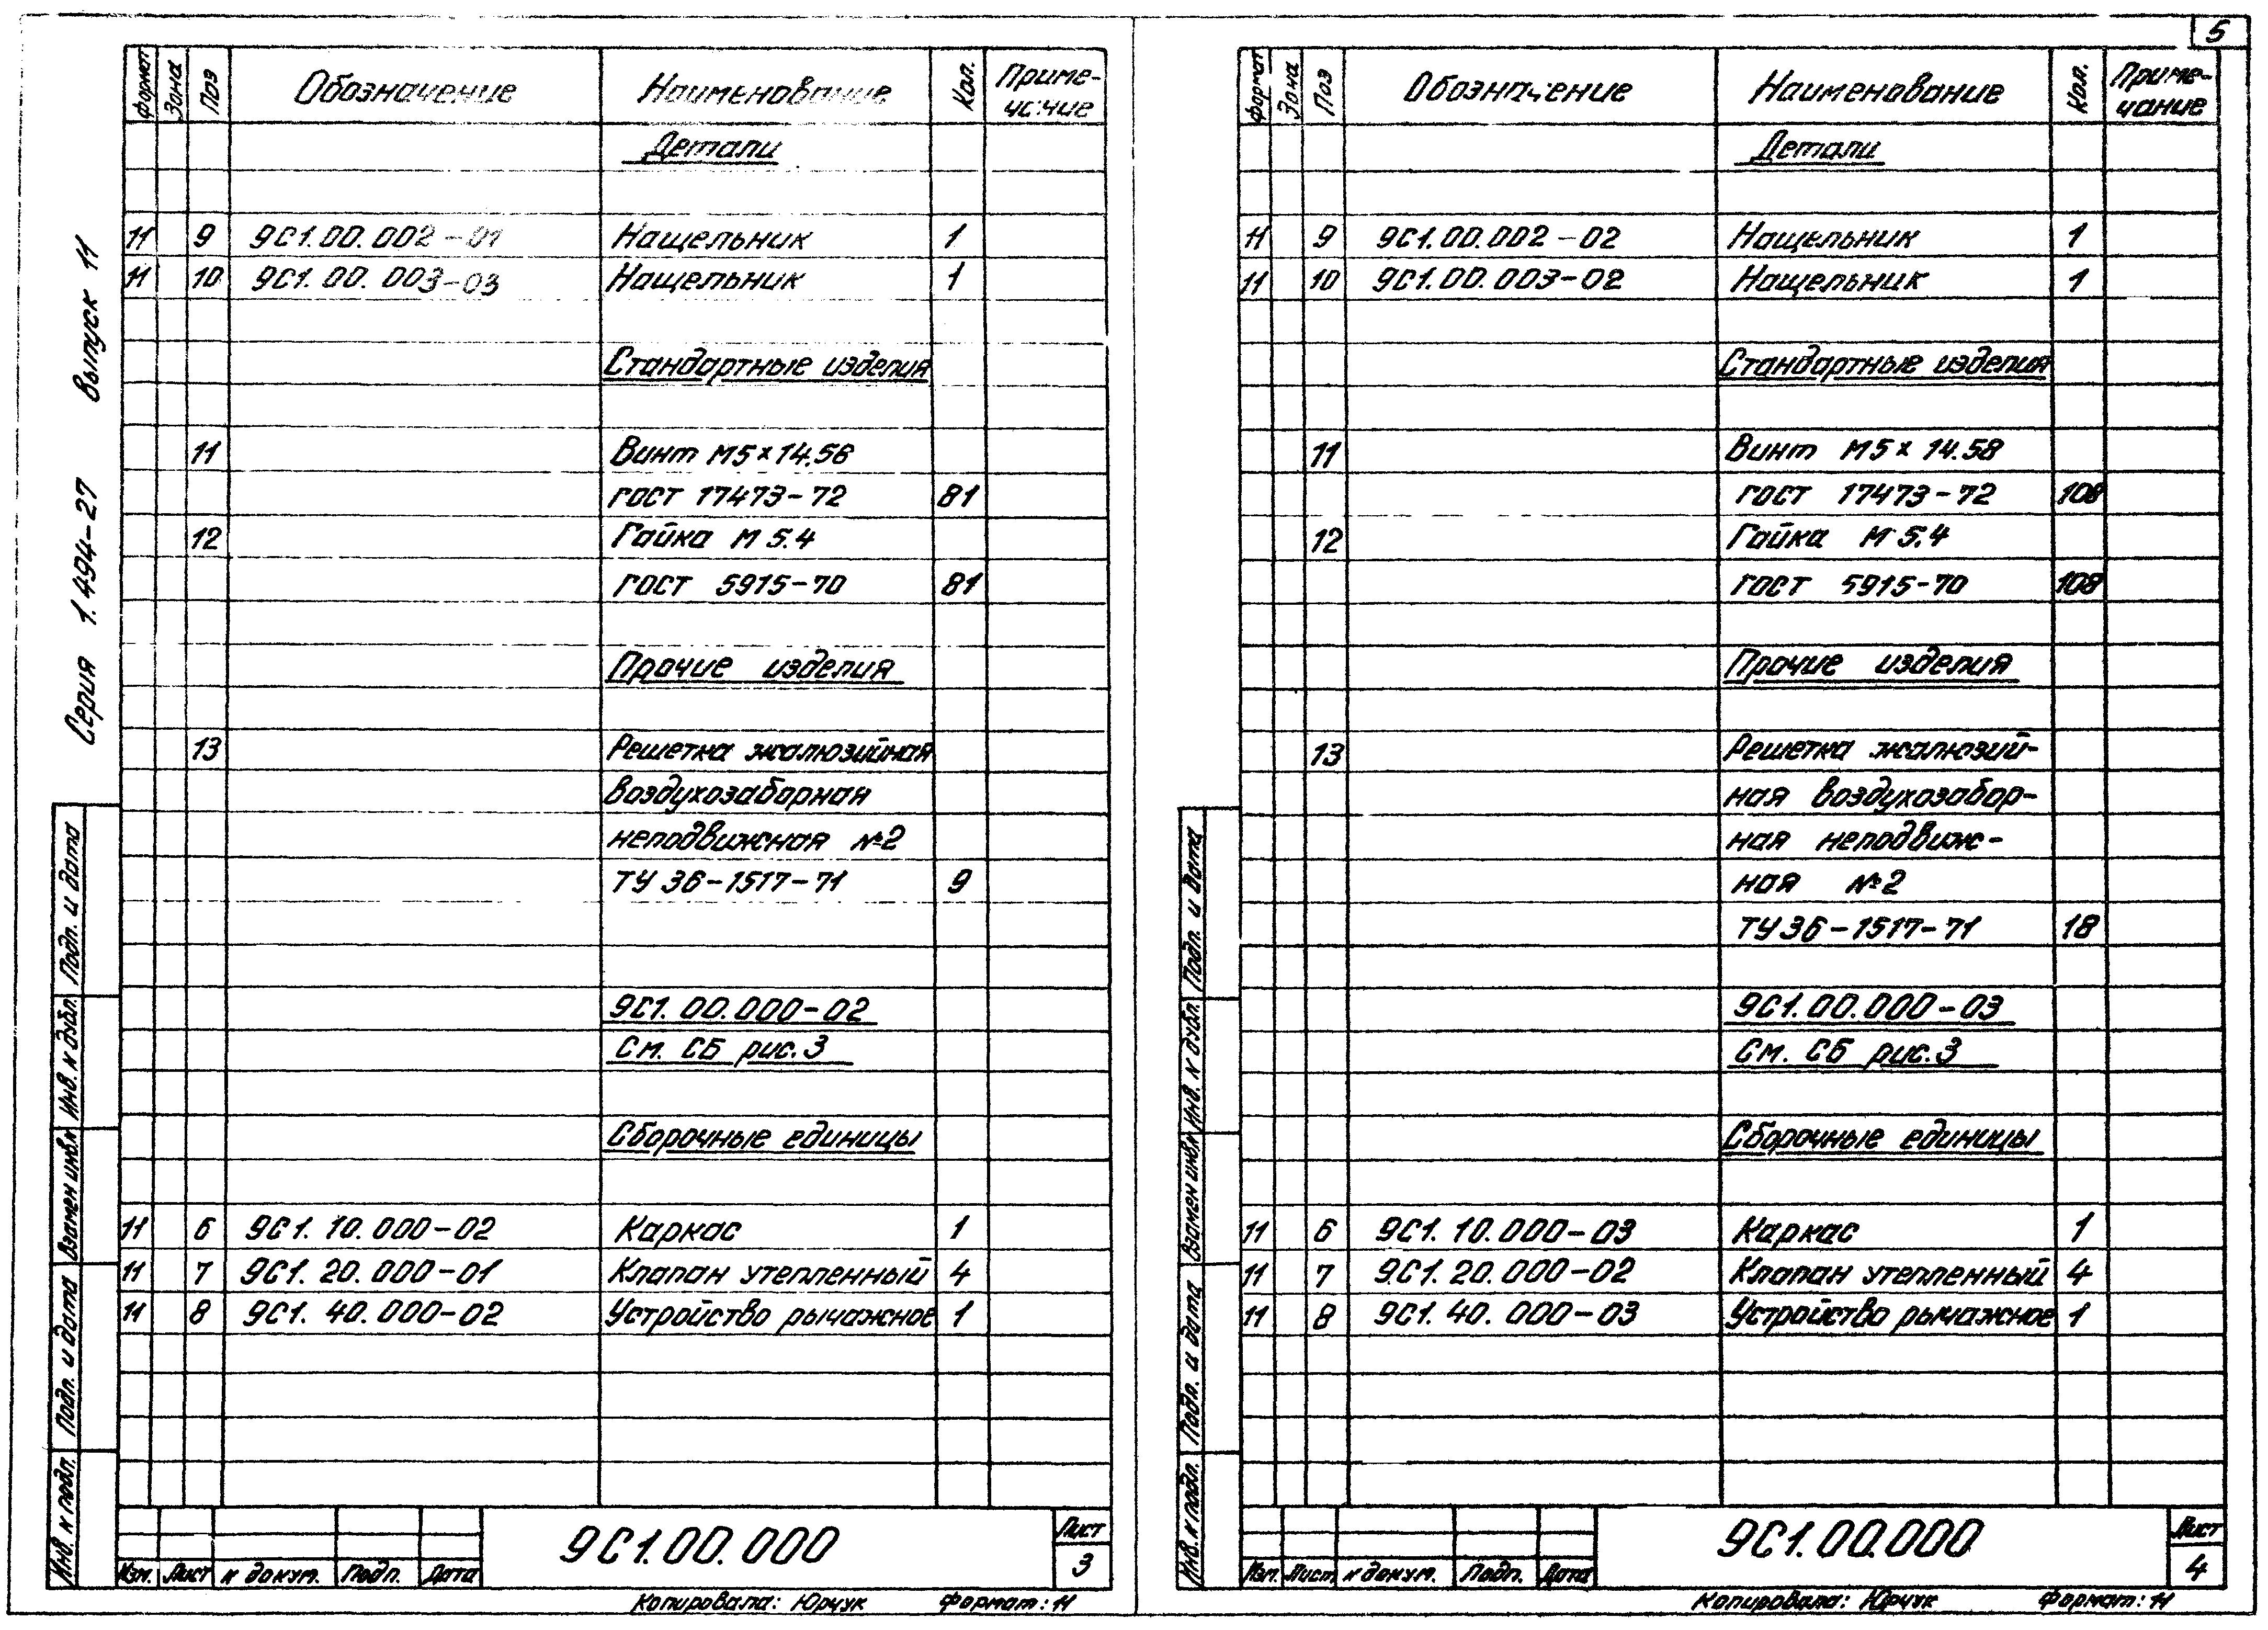 5
Серия 1.494-27 Выпуск 11
Формат Зона Поз Обозначение Наименование Кол. Приме-
чание
Детали
11 9 9С1.00.002-01 Нащельник 1
11 10 9С1.00.003-03 Нащельник 1
Стандартные изделия
11 Винт М5х14.56
ГОСТ 17473-72 81
12 Гайка М5.4
ГОСТ 5915-70 81
Прочие изделия
13 Решетка жалюзийная
воздухозаборная
неподвижная №2
ТУ 36-1517-71 9
9С1.00.000-02
См. СБ рис.3
Сборочные единицы
11 6 9С1.10.000-02 Каркас 1
11 7 9С1.20.000-01 Клапан утепленный 4
11 8 9С1.40.000-02 Устройство рычажное 1
Инв. № подл. Подп. и дата Взамен инв.№ Инв. № дубл. Подп. и дата
Изм. Лист № докум. Подп. Дата
9С1.00.000
Лист
3
Копировала: Юрчук Формат: 11
Формат Зона Поз Обозначение Наименование Кол. Приме-
чание
Детали
11 9 9С1.00.002-02 Нащельник 1
11 10 9С1.00.003-02 Нащельник 1
Стандартные изделия
11 Винт М5х14.58
ГОСТ 17473-72 108
12 Гайка М5.4
ГОСТ 5915-70 108
Прочие изделия
13 Решетка жалюзий-
ная воздухозабор-
ная неподвиж-
ная №2
ТУ 36-1517-71 18
9С1.00.000-03
См. СБ рис.3
Сборочные единицы
11 6 9С1.10.000-03 Каркас 1
11 7 9С1.20.000-02 Клапан утепленный 4
11 8 9С1.40.000-03 Устройство рычажное 1
Инв. № подл. Подп. и дата Взамен инв.№ Инв. № дубл. Подп. и дата
Изм. Лист № докум. Подп. Дата
9С1.00.000
Лист
4
Копировала: Юрчук Формат: 11